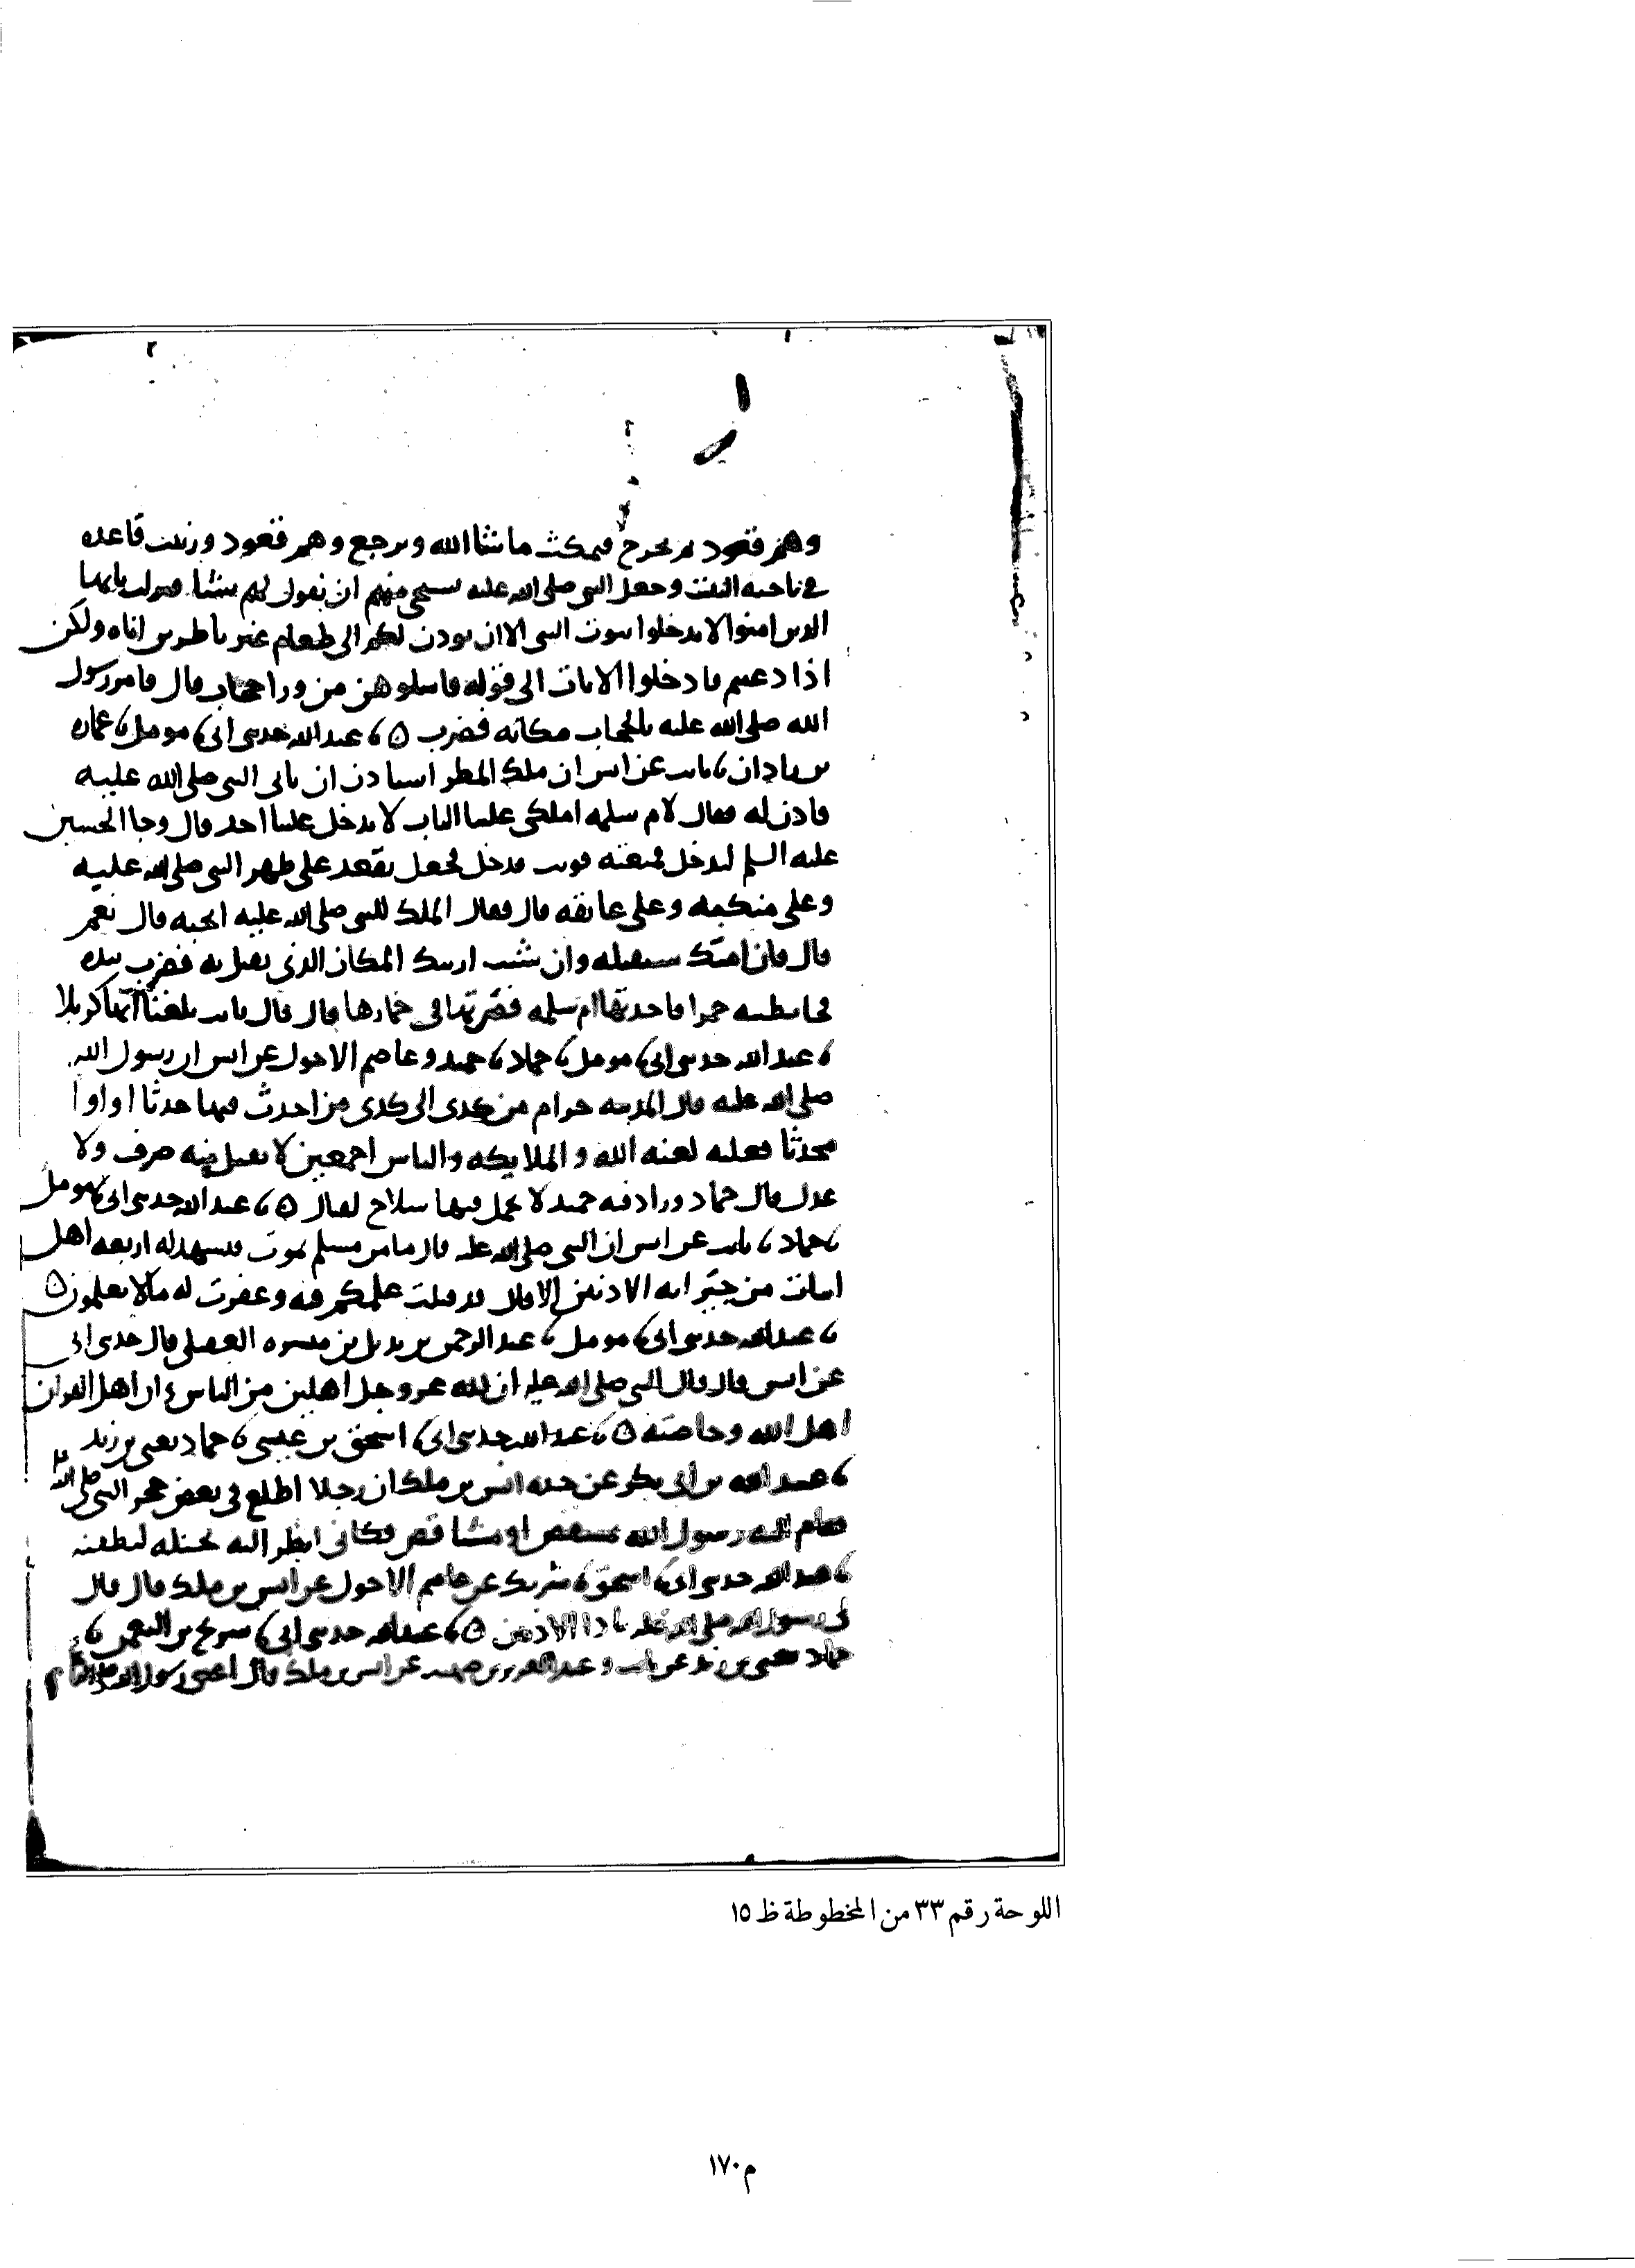 وهم قعود ثم يخرج فيمكث ما شا الله ويرجع وهم قعود وزينب قاعده
في ناحيه البيت وجعل النبي صلى الله عليه يستحي منهم ان يقول لهم شيئا فنزلت يايها
الذين امنوا لا تدخلوا بيوت النبي الا ان يوذن لكم الى طعام غير ناظرين اناه ولكن
اذا دعيتم فادخلوا الايات الى قوله فاسلوهن من ورا حجاب قال فامر رسول
الله صلى الله عليه بالحجاب مكانه فضرب ه ثنا عبد الله حدثني ابي ثنا مومل ثنا عماره
بن زاذان ثنا ثابت عن انس ان ملك المطر استاذن ان ياتي النبي صلى الله عليه
فاذن له فقال لام سلمه املكي علينا الباب لا يدخل علينا احد قال وجا الحسين
عليه السلم ليدخل فمنعته فوثب فدخل فجعل يقعد على ظهر النبي صلى الله عليه
وعلى منكبه وعلى عاتقه قال فقال الملك للنبي صلى الله عليه اتحبه قال نعم
قال فان امتك ستقتله وان شئت اريتك المكان الذي يقتل به فضرب بيده
فجا بطينه حمرا فاخذتها ام سلمه فصرتها في خمارها قال قال ثابت بلغنا انها كربلا
ثنا عبد الله حدثني ابي ثنا مومل ثنا حماد ثنا حميد وعاصم الاحول عن انس ان رسول الله
صلى الله عليه قال المدينه حرام من كدى الى كدى من احدث فيها حدثا او اوا
محدثا فعليه لعنه الله و الملايكه والناس اجمعين لا يقبل منه صرف ولا
عدل قال حماد وزاد فيه حميد لا يحمل فيها سلاح لقتال ه ثنا عبد الله حدثني ابي ثنا مومل
ثنا حماد ثنا ثابت عن انس ان النبي صلى الله عليه قال ما من مسلم يموت فيشهد له اربعه اهل
ابيات من جيرانه الادنين الا قال قد قبلت علمكم فيه وغفرت له ما لا يعلمون ه
ثنا عبد الله حدثني ابي ثنا مومل ثنا عبد الرحمن بن بديل بن ميسره العقيلي قال حدثني ابي
عن انس قال قال النبي صلى الله عليه ان لله عز وجل اهلين من الناس وان اهل القران
اهل الله وخاصته ه ثنا عبد الله حدثني ابي ثنا اسحق بن عيسى ثنا حماد يعني بن زيد
ثنا عبيد الله بن ابي بكر عن جده انس بن ملك ان رجلا اطلع في بعض حجر النبي صلى الله عليه
فقام اليه رسول الله بمشقص او مشاقص فكاني انظر اليه يختله ليطعنه
ثنا عبد الله حدثني ابي ثنا اسحق ثنا شريك عن عاصم الاحول عن انس بن ملك قال قال
لي رسول الله صلى الله عليه ياذا الاذنين ه ثنا عبد الله حدثني ابي ثنا سريج بن النعمن ثنا
حماد يعني بن زيد عن ثابت وعبد العزيز بن صهيب عن انس بن ملك قال اعتق رسول الله
اللوحة رقم ٣٣ من المخطوطة ظ ١٥
م ١٧٠